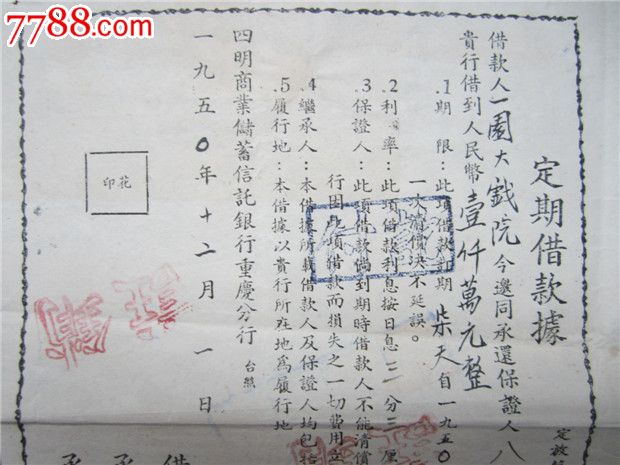 7788.com
定期借款據
借款人一園大戲院今邀同承還保證人八
貴行借到人民幣壹仟萬元整
1.期限：此項借款訂期柒天自一九五〇
一次清償決不延誤。
2.利率：此項借款利息按日息 分三厘
3.保證人：此項借款倘到期時借款人不能清償
行因此項借款而損失之一切費用
4.繼承人：本借據所載借款人及保證人均包括
5.履行地：本借據以貴行所在地為履行地
四明商業儲蓄信託銀行重慶分行
台照
一九五〇年十二月一日
印花
定放
借
承
承